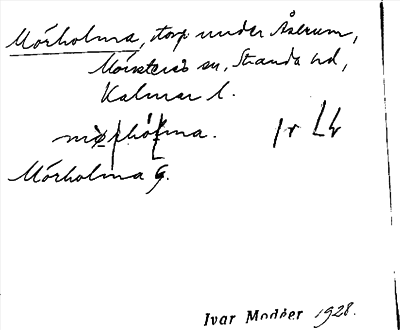 Mörholma, torp under Åserum,
Mönsterås sn, Stranda hd,
Kalmar l.
Mörholma G.
Ivar Modéer 1928.